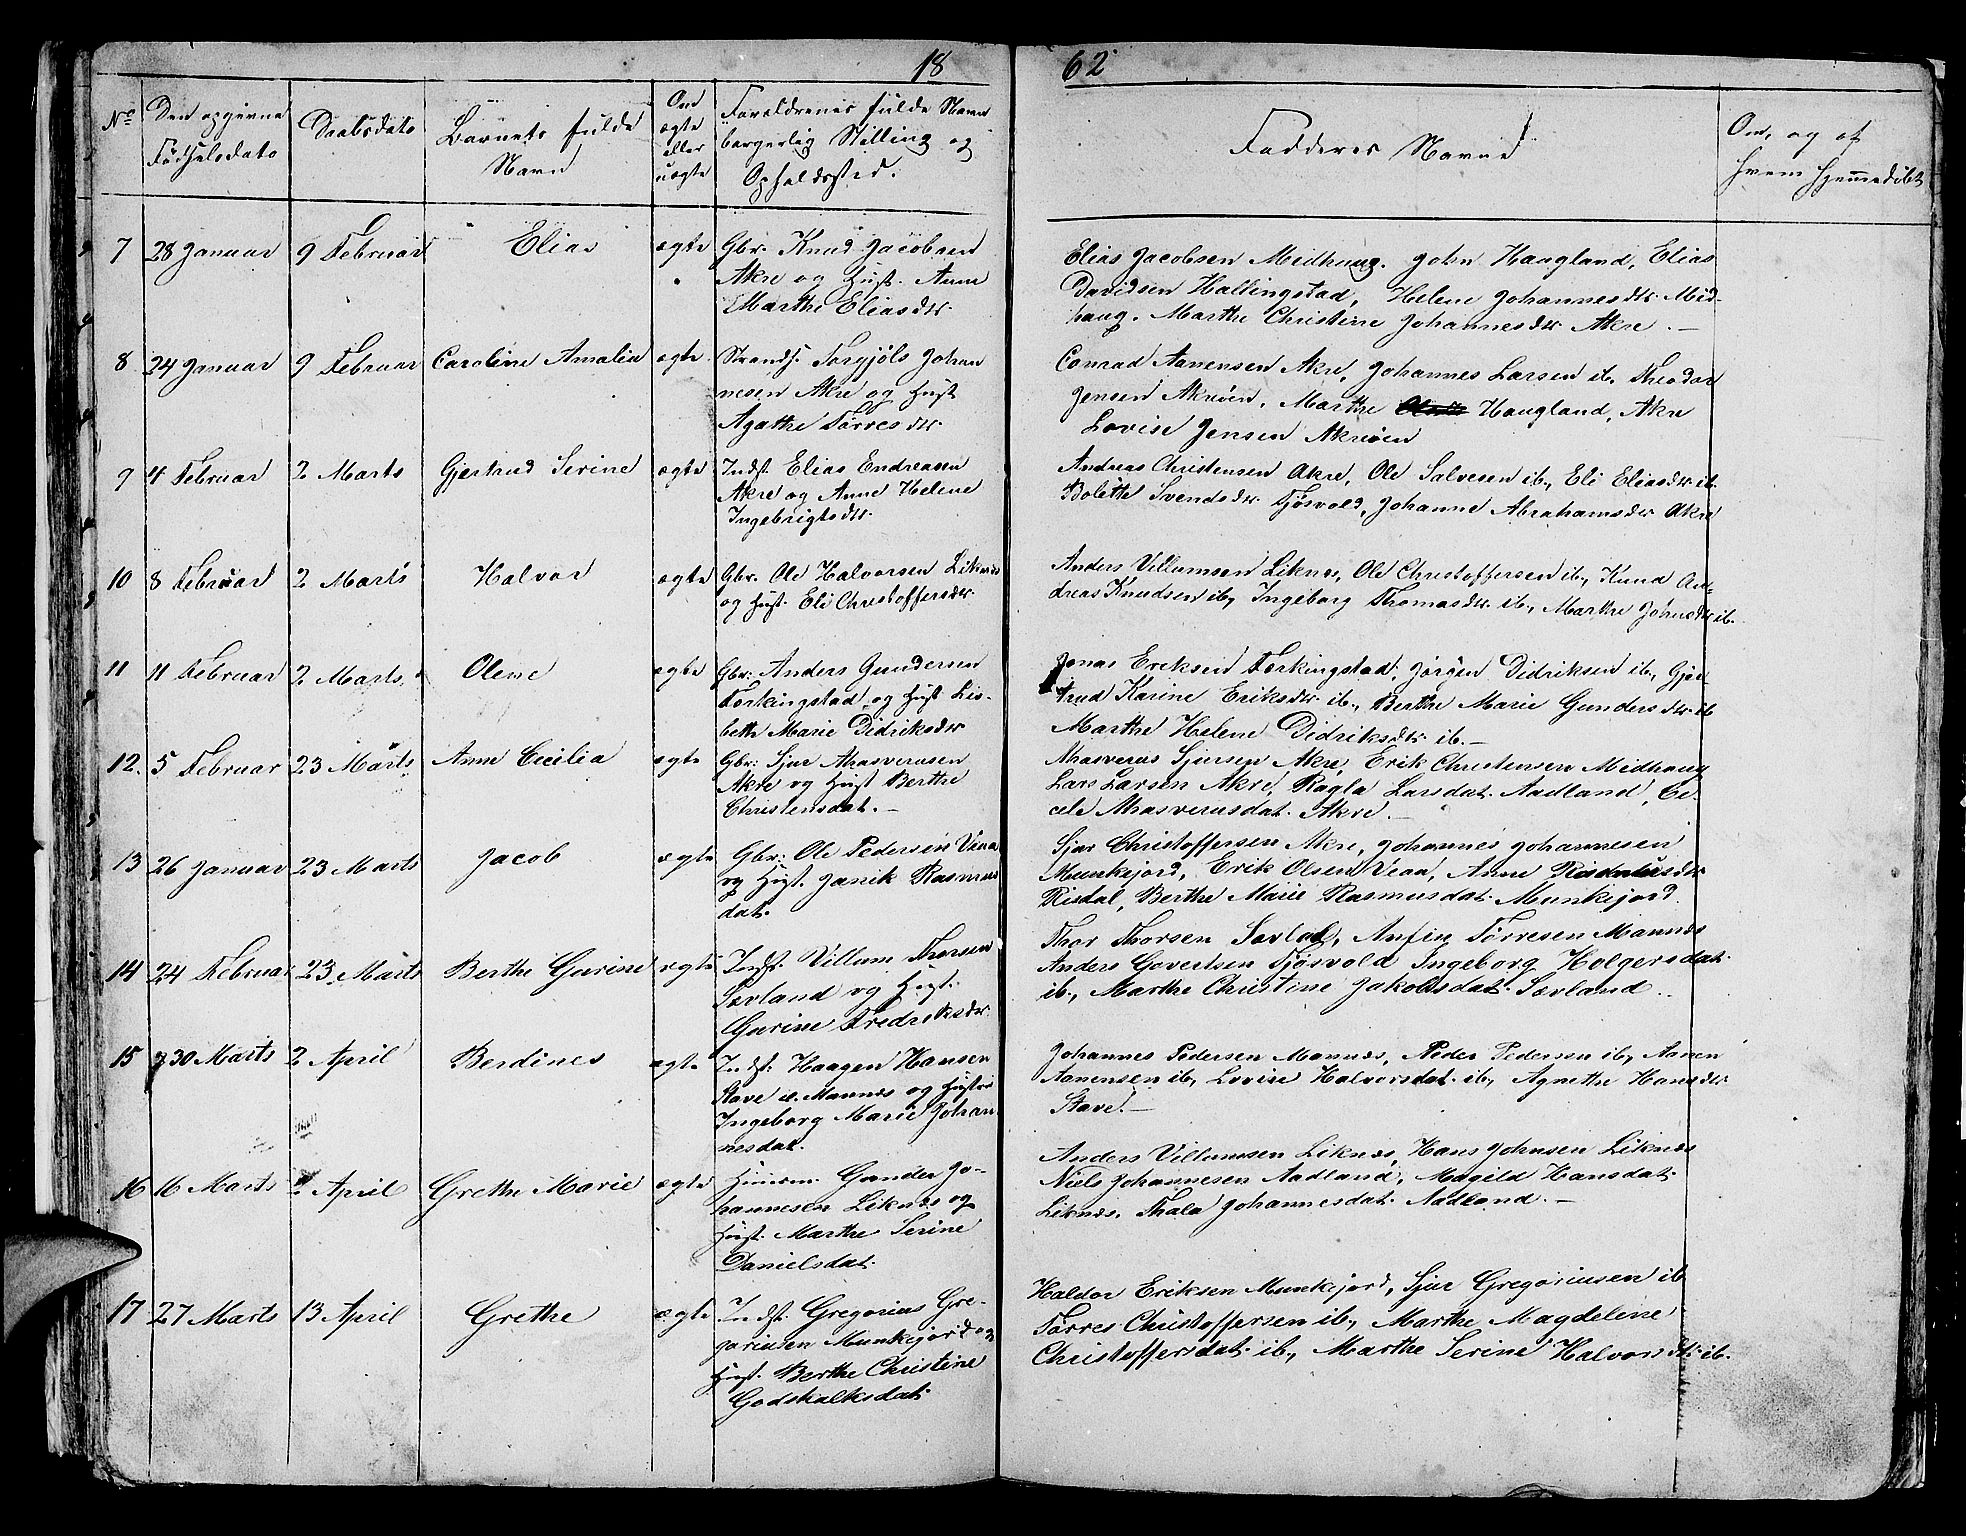 18 62
Nº
Den opgivne Fødselsdato
Daabsdato
Barnets fulde Navn
Om ægte eller uægte
Forældrenes fulde Navn borgerlig Stilling og Opholdssted.
Faddernes Navne
Om, og af hvem hjemmedøbt
7 28 Januar 9 Februar Elias ægte Gbr. Knud Jacobsen
Akre og Hust. Anne
Marthe Eliasdtr.
Elias Jacobsen Midhaug. John Haagland, Elias
Davidsen Hallingstad, Helene Johannesdtr Mid-
haug. Marthe Christine Johannesdtr Akre. —
8 24 Januar 9 Februar Caroline Amalia ægte Strands. Torgjøls Johan
nesen Akre og Hust
Agathe Tørresdtr.
Conrad Aanensen Akre, Johannes Larsen ib. Theodor
Jensen Akreøen, Marthe Haugland, Akre
Lovise Jensen Akreøen
9 4 Februar 2 Marts Gjertrud Serine ægte Indst. Elias Endreasen
Akre og Anne Helene
Ingebrigtsdtr.
Andreas Christensen Akre, Ole Salvesen ib., Eli Eliasdtr ib.
Bolette Svendsdtr. Tjøsvold, Johanne Abrahamsdtr Akre
10 8 Februar 2 Marts Halvor ægte Gbr. Ole Halvorsen Liknæs
og Hust. Eli Christoffersdtr.
Anders Villumsen Liknæs, Ole Christoffersen ib., Knud An-
dreas Knudsen ib., Ingeborg Thomasdtr. ib., Marthe Johnsdtr ib.
11 11 Februar 2 Marts. Olene ægte Gbr. Anders Gundersen
Førkingstad og Hust Lis-
beth Marie Didriksdtr
Jonas Eriksen Førkingstad, Jørgen Didriksen ib., Gjer
trud Karine Eriksdtr. ib., Berthe Marie Gundersdtr. ib
Marthe Helene Didriksdtr. ib. —
12. 5 Februar 23 Marts Anne Cecilia ægte Gbr: Sjur Ahasverusen
Akre og Hust Berthe
Christensdat. —
Ahasverus Sjursen Akre, Erik Christensen Midhaug
Lars Larsen Akre, Ragla Larsdat. Aadland, Ce-
cele Ahasverusdat. Akre. —
13 26 Januar 23 Marts Jacob ægte Gbr: Ole Pedersen Veaa
og Hust. Janik Rasmus
dat.
Sjur Christoffersen Akre, Johannes Johannesen
Munkejord, Erik Olsen Veaa, Anne
Risdal, Berthe Marie Rasmusdat. Munkejord.
14 24 Februar 23 Marts Berthe Gurine ægte Indst. Villum Thorsen
Sævland og Hust.
Gurine Fredriksdtr.
Thor Thorsen Anfin Tørresen Mannes
Anders Govertsen Tjøsvold Ingeborg Holgersdat.
ib., Marthe Christine Jakobsdat. Sævland.
15 30 Marts 2 April Berdines ægte Indst. Haagen Hansen
Stave Mannes og Hustru
Ingeborg Marie Johan
nesdat.
Johannes Pedersen Mannæs, Peder Pedersen ib., Aanen
Aanensen ib., Lovise Halvorsdat. ib., Agnethe Hansdtr
Stave. —
16 16 Marts 2 April Grethe Marie ægte Huusm. Gunder Jo-
hannesen Liknæs og
Hust. Marthe Serine
Danielsdat.
Anders Villumsen Liknæs, Hans Johnsen Liknæs
Niels Johannesen Aadland, Magild Hansdat.
Liknæs. Thala Johannesdat. Aadland. —
17 27 Marts 13 April Grethe ægte Indst. Gregorius Gre-
goriusen Munkejord og
Hust. Berthe Christine
Godskalksdat.
Haldor Eriksen Munkejord, Sjur Gregoriusen ib
Tørres Christoffersen ib., Marthe Magdelene
Christoffersdat. ib., Marthe Serine Halvorsdtr. ib.